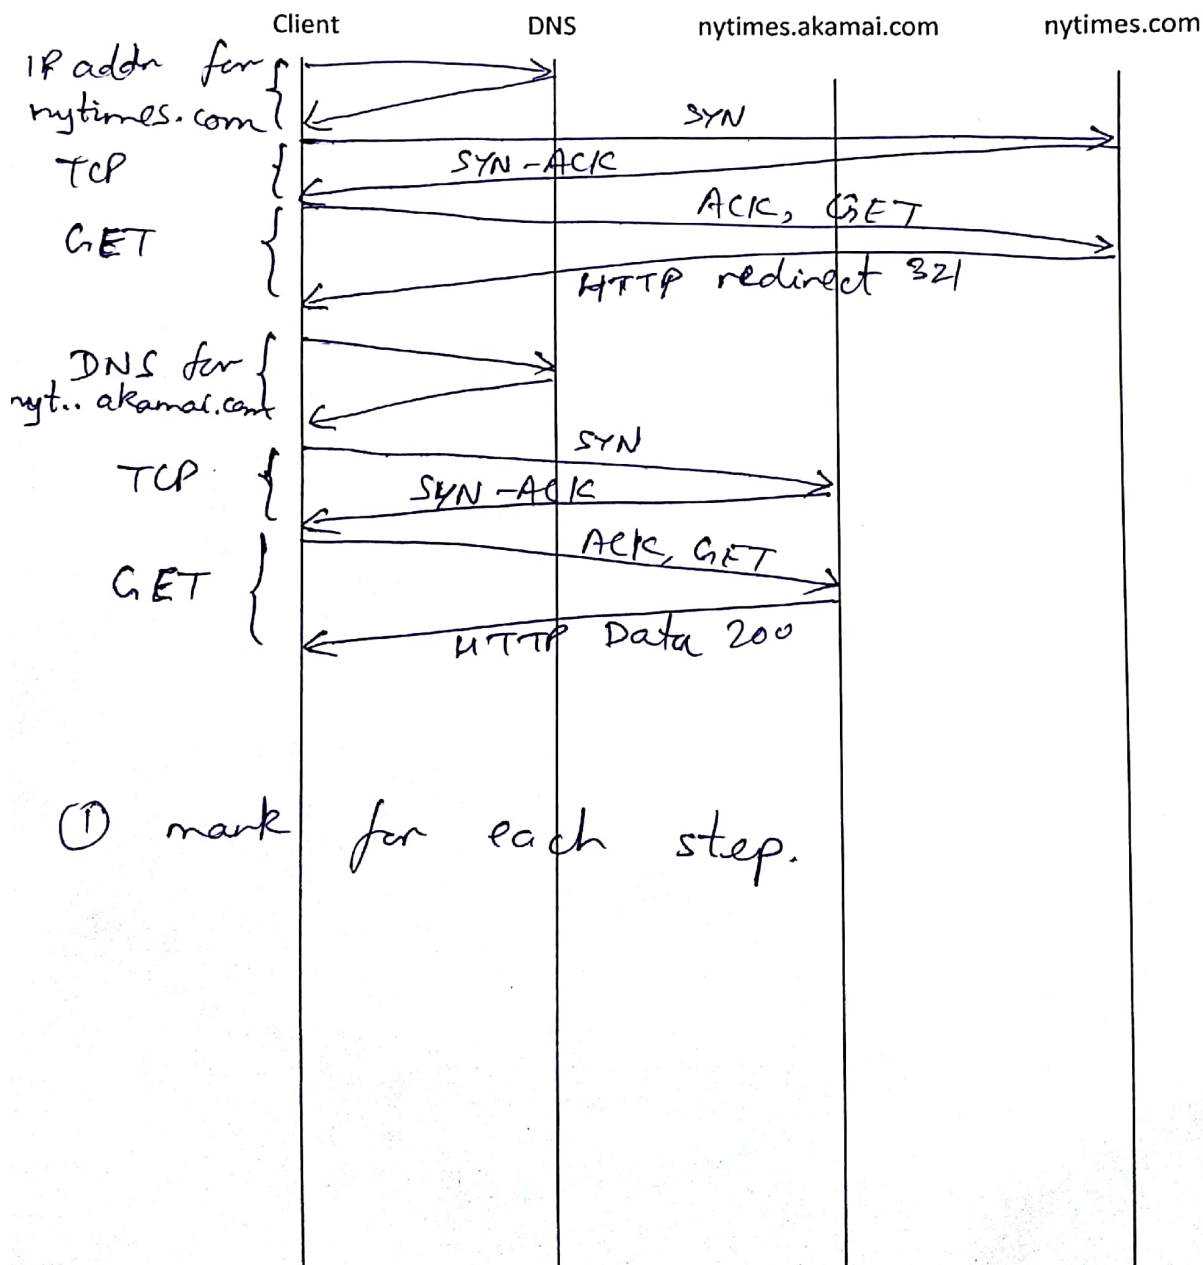 Client DNS nytimes.akamai.com nytimes.com
IP addr for
nytimes.com
SYN
TCP
SYN-ACK
ACK, GET
GET
HTTP redirect 321
DNS for
nyt.. akamai.com
SYN
TCP
SYN-ACK
ACK, GET
GET
HTTP Data 200
① mark for each step.